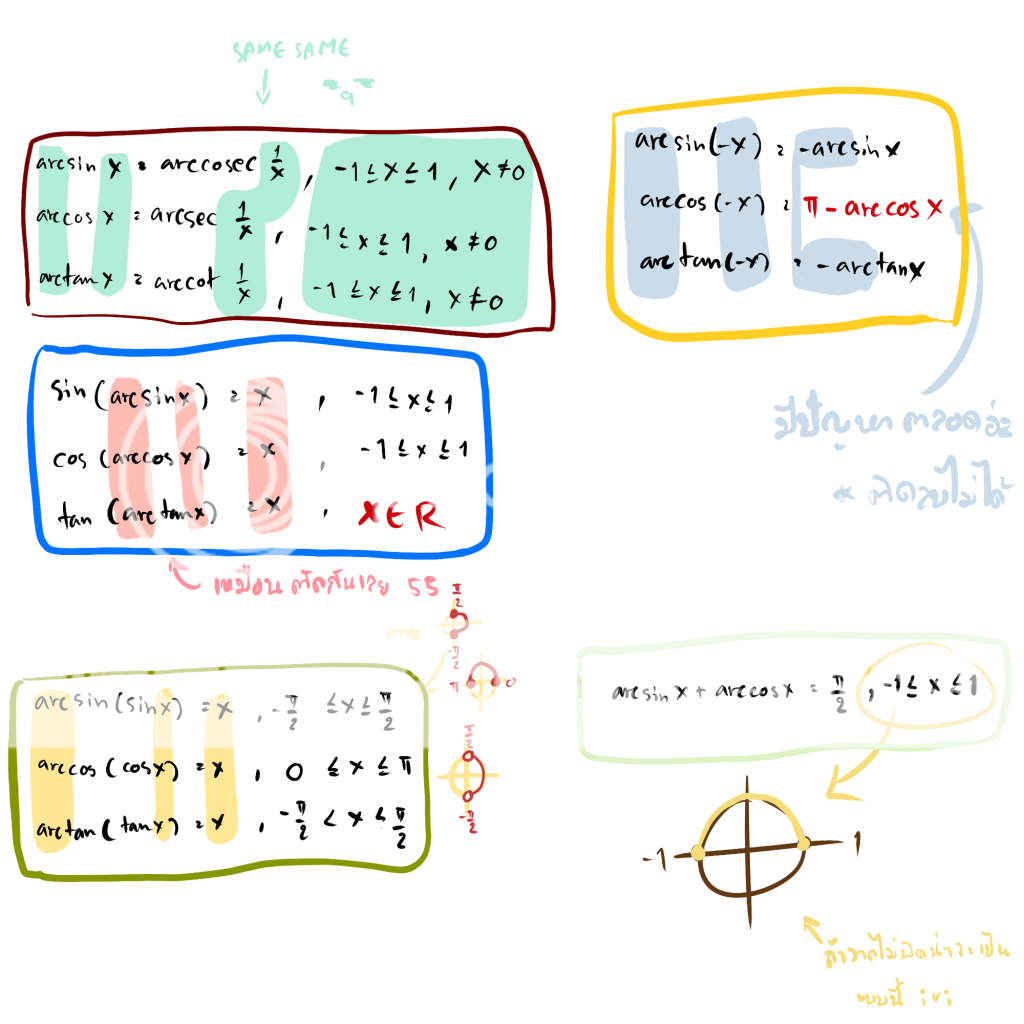 SAME SAME
arcsin x = arccosec 1/x , -1 ≤ x ≤ 1 , x ≠ 0
arccos x = arcsec 1/x , -1 ≤ x ≤ 1 , x ≠ 0
arctan x = arccot 1/x , -1 ≤ x ≤ 1 , x ≠ 0
arcsin(-x) = -arcsin x
arccos(-x) = π - arccos x
arctan(-x) = -arctan x
มีปัญหาตลอดอ่ะ
* ติดลบไม่ได้
sin (arcsin x) = x , -1 ≤ x ≤ 1
cos (arccos x) = x , -1 ≤ x ≤ 1
tan (arctan x) = x , x ∈ R
เหมือนตัดกันเลย 55
π/2
-π/2
π 0
arcsin (sin x) = x , -π/2 ≤ x ≤ π/2
arccos (cos x) = x , 0 ≤ x ≤ π
arctan (tan x) = x , -π/2 < x ≤ π/2
π/2
-π/2
arcsin x + arccos x = π/2 , -1 ≤ x ≤ 1
-1 1
ถ้าวาดไม่ผิดน่าจะเป็น
แบบนี้ ;v;